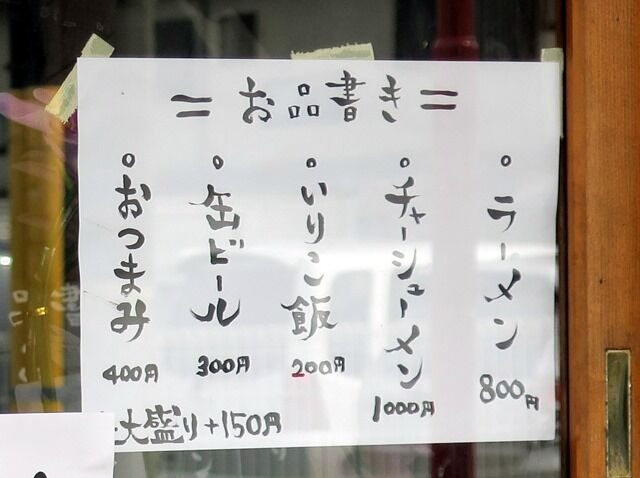 = お品書き =
○ ラーメン 800円
○ チャーシューメン 1000円
○ いりこ飯 200円
○ 缶ビール 300円
○ おつまみ 400円
大盛り+150円